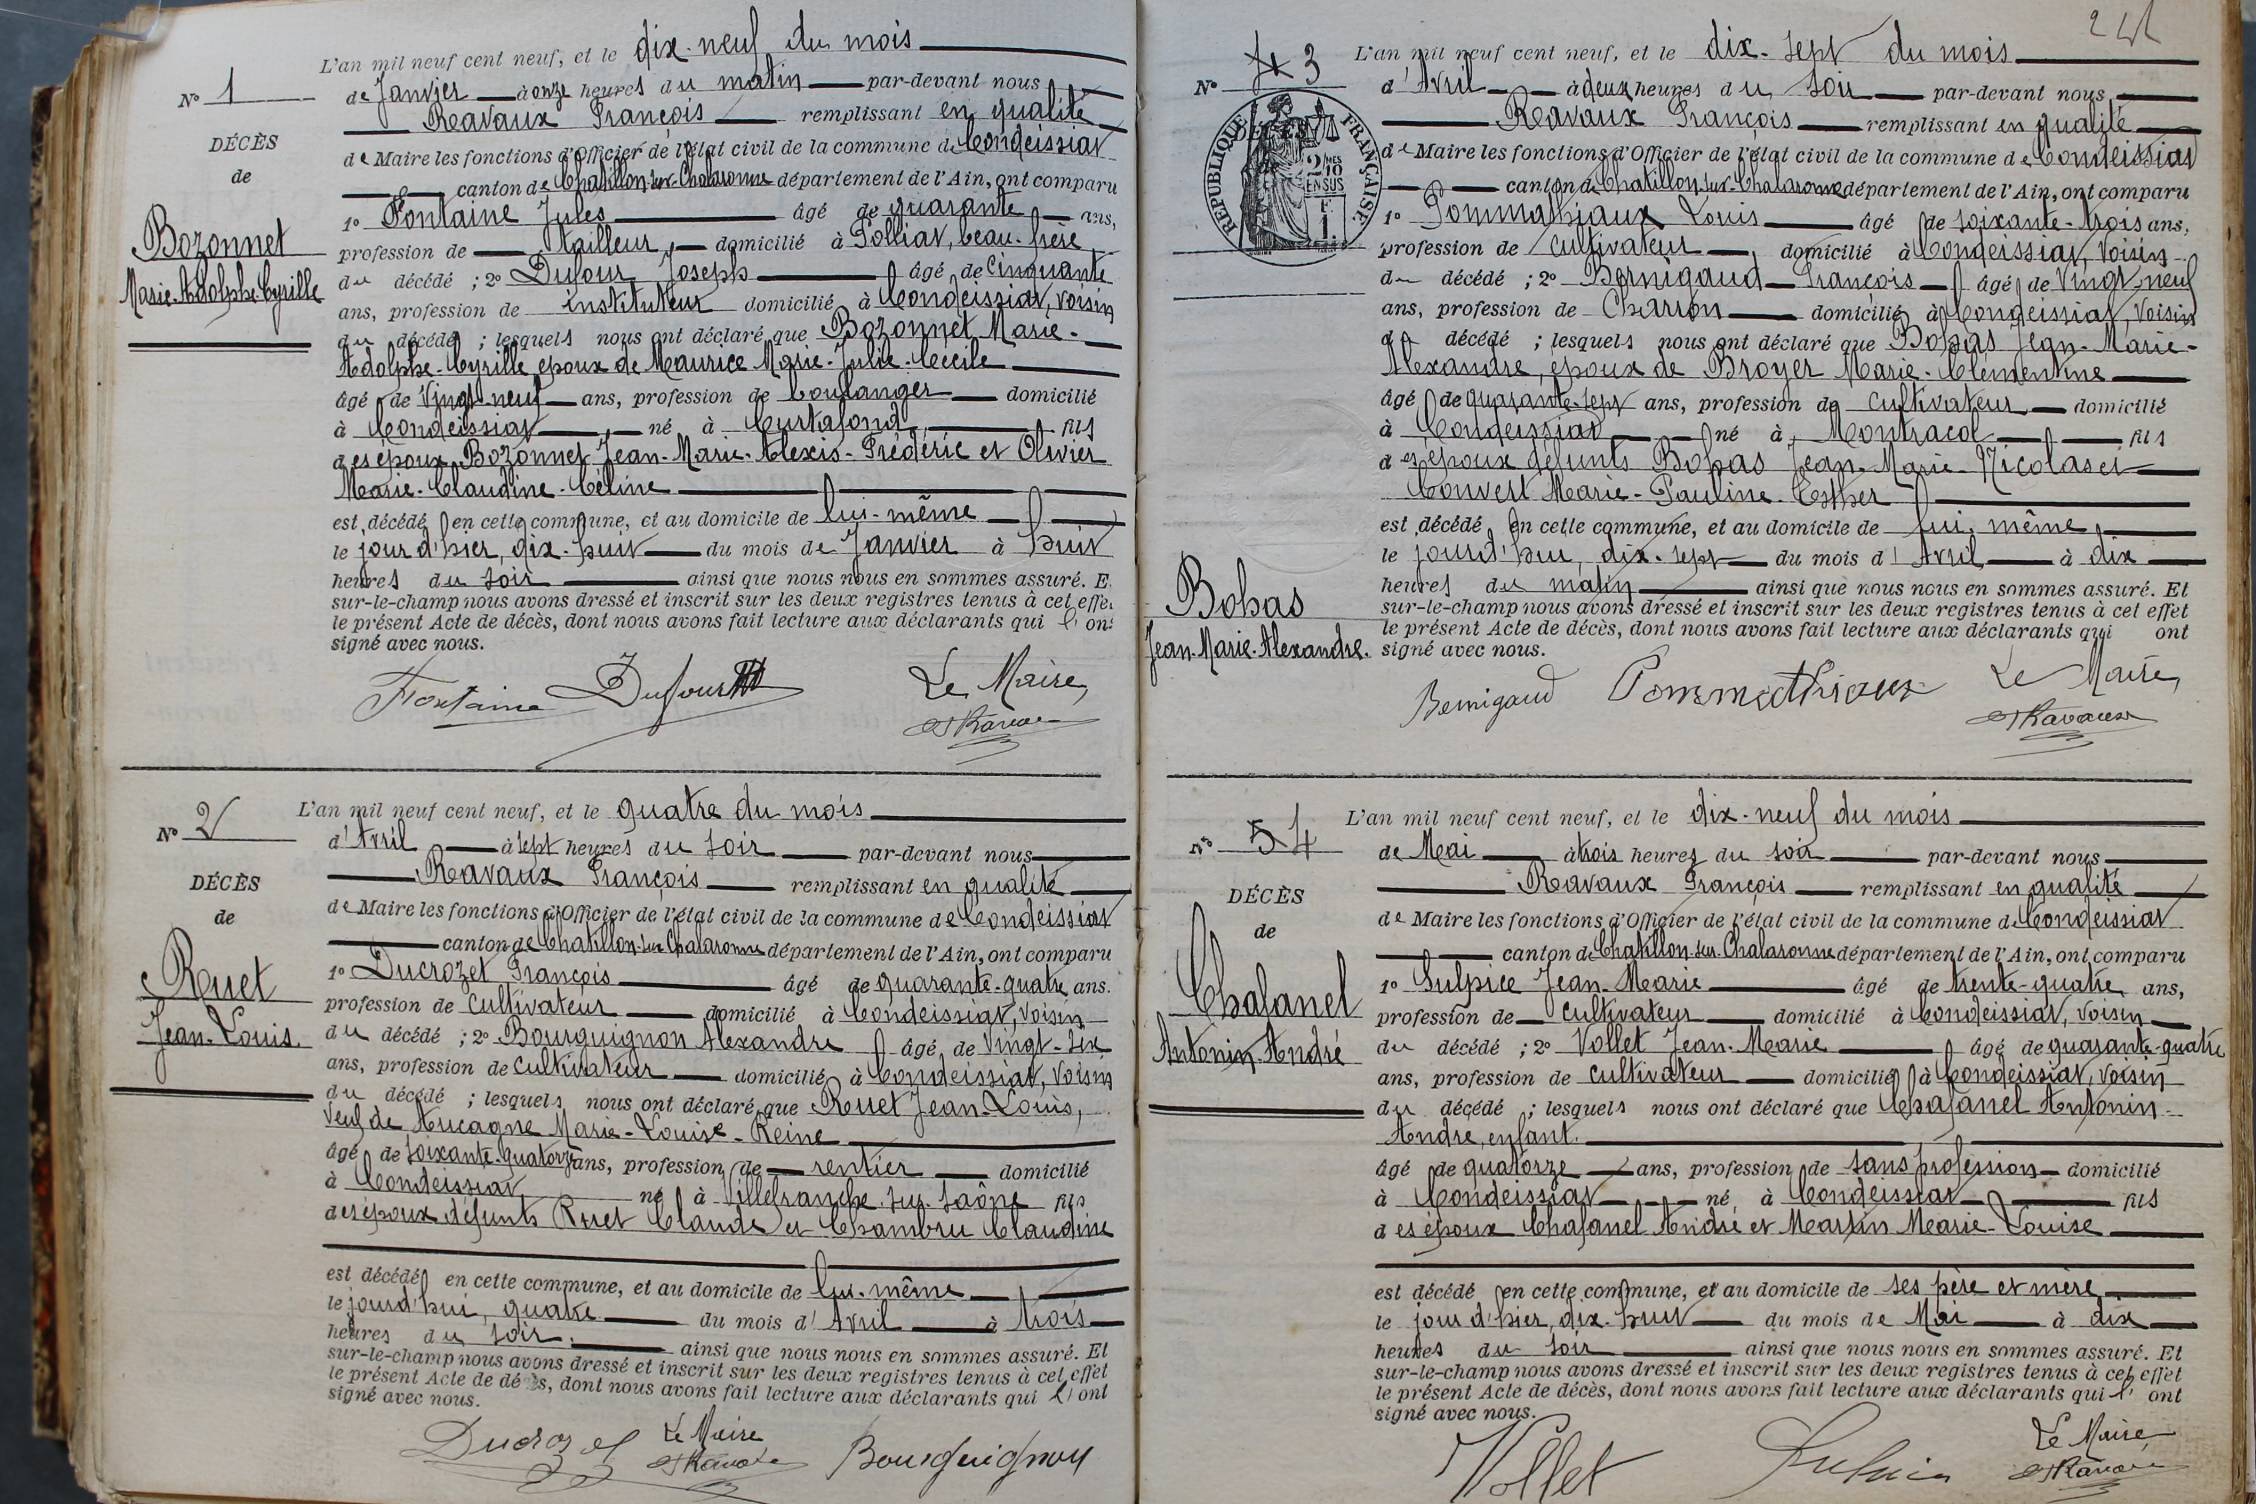 L'an mil neuf cent neuf, et le dix-neuf du mois
N° 1
de Janvier à onze heures du matin par-devant nous
Ravaux François remplissant en qualité
DÉCÈS
de
de Maire les fonctions d'Officier de l'état civil de la commune de Condeissiat
canton de Chatillon-sur-Chalaronne département de l'Ain, ont comparu
1° Fontaine Jules âgé de quarante ans,
Bozonnet
Marie-Adolphe-Cyrille
profession de tailleur, domicilié à Polliat, beau-frère
du décédé ; 2° Dufour Joseph âgé de cinquante
ans, profession de instituteur domicilié à Condeissiat, voisin
du décédé ; lesquels nous ont déclaré que Bozonnet Marie-
Adolphe-Cyrille, époux de Maurice Marie-Julie-Cécile
âgé de vingt-neuf ans, profession de boulanger domicilié
à Condeissiat, né à Curtafond, fils
des époux Bozonnet Jean-Marie-Alexis-Frédéric et Olivier
Marie-Claudine-Céline
est décédé en cette commune, et au domicile de lui-même
le jour d'hier, dix-huit du mois de Janvier à huit
heures du soir ainsi que nous nous en sommes assuré. E
sur-le-champ nous avons dressé et inscrit sur les deux registres tenus à cet effet
le présent Acte de décès, dont nous avons fait lecture aux déclarants qui l'ont
signé avec nous.
Fontaine Dufour Le Maire,
F Ravaux
N° 2
L'an mil neuf cent neuf, et le quatre du mois
d'Avril à sept heures du soir par-devant nous
Ravaux François remplissant en qualité
DÉCÈS
de
de Maire les fonctions d'Officier de l'état civil de la commune de Condeissiat
canton de Chatillon-sur-Chalaronne département de l'Ain, ont comparu
1° Ducrozet François âgé de quarante-quatre ans.
Ruet
Jean-Louis.
profession de cultivateur domicilié à Condeissiat, voisin
du décédé ; 2° Bourguignon Alexandre âgé de vingt-six
ans, profession de cultivateur domicilié à Condeissiat, voisin
du décédé ; lesquels nous ont déclaré que Ruet Jean-Louis,
veuf de Aucagne Marie-Louise-Reine
âgé de soixante-quatorze ans, profession de rentier domicilié
à Condeissiat, né à Villefranche-sur-Saône fils
des époux défunts Ruet Claude et Chambru Claudine
est décédé en cette commune, et au domicile de lui-même
le jourd'hui, quatre du mois d'Avril à trois
heures du soir. ainsi que nous nous en sommes assuré. Et
sur-le-champ nous avons dressé et inscrit sur les deux registres tenus à cet effet
le présent Acte de décès, dont nous avons fait lecture aux déclarants qui l'ont
signé avec nous.
Ducrozet Le Maire Bourguignon
F Ravaux
N° 3
L'an mil neuf cent neuf, et le dix-sept du mois
d'Avril à deux heures du soir par-devant nous
Ravaux François remplissant en qualité
RÉPUBLIQUE FRANÇAISE
2/10 MES
EN SUS
de Maire les fonctions d'Officier de l'état civil de la commune de Condeissiat
canton de Chatillon-sur-Chalaronne département de l'Ain, ont comparu
1° Pommathiaux Louis âgé de soixante-trois ans,
profession de cultivateur, domicilié à Condeissiat, voisin
du décédé ; 2° Bernigaud François âgé de vingt-neuf
ans, profession de Charron domicilié à Condeissiat, voisin
du décédé ; lesquels nous ont déclaré que Bohas Jean-Marie-
Alexandre, époux de Broyer Marie-Clémentine
âgé de quarante-sept ans, profession de cultivateur domicilié
à Condeissiat, né à Montracol fils
des époux défunts Bohas Jean-Marie-Nicolas et
Convert Marie-Pauline-Esther
est décédé en cette commune, et au domicile de lui-même,
le jourd'hui, dix-sept du mois d'Avril à dix
Bohas
Jean-Marie-Alexandre.
heures du matin ainsi que nous nous en sommes assuré. Et
sur-le-champ nous avons dressé et inscrit sur les deux registres tenus à cet effet
le présent Acte de décès, dont nous avons fait lecture aux déclarants qui ont
signé avec nous.
Bernigaud Pommathiaux Le Maire,
F Ravaux
N° 5 4
L'an mil neuf cent neuf, et le dix-neuf du mois
de Mai à trois heures du soir par-devant nous
Ravaux François remplissant en qualité
DÉCÈS
de
de Maire les fonctions d'Officier de l'état civil de la commune de Condeissiat
canton de Chatillon-sur-Chalaronne département de l'Ain, ont comparu
1° Sulpice Jean-Marie âgé de trente-quatre ans,
Chafanel
Antonin-André
profession de cultivateur domicilié à Condeissiat, voisin
du décédé ; 2° Vollet Jean-Marie âgé de quarante-quatre
ans, profession de cultivateur domicilié à Condeissiat, voisin
du décédé ; lesquels nous ont déclaré que Chafanel Antonin-
André, enfant.
âgé de quatorze ans, profession de sans profession domicilié
à Condeissiat né à Condeissiat fils
des époux Chafanel André et Martin Marie-Louise
est décédé en cette commune, et au domicile de ses père et mère
le jour d'hier, dix-huit du mois de Mai à dix
heures du soir ainsi que nous nous en sommes assuré. Et
sur-le-champ nous avons dressé et inscrit sur les deux registres tenus à cet effet
le présent Acte de décès, dont nous avons fait lecture aux déclarants qui l'ont
signé avec nous.
Vollet Sulpice Le Maire,
F Ravaux